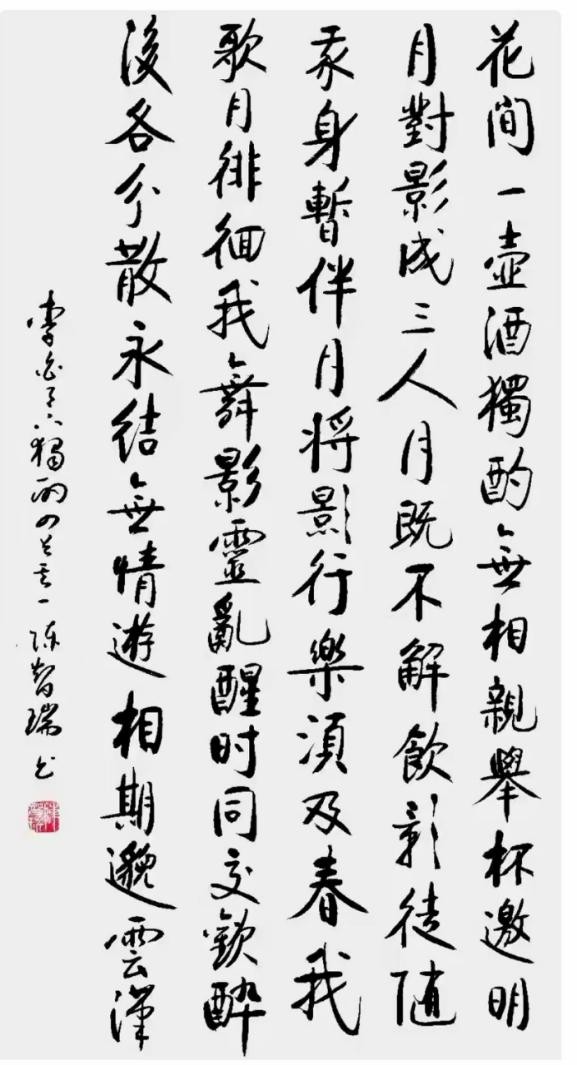 花間一壺酒獨酌無相親舉杯邀明
月對影成三人月既不解飲影徒随
我身暫伴月将影行樂須及春我
歌月徘徊我舞影靈亂醒时同交歡醉
後各分散永結無情遊相期邈雲漢
李白月下獨酌四首其一 陈智瑞书